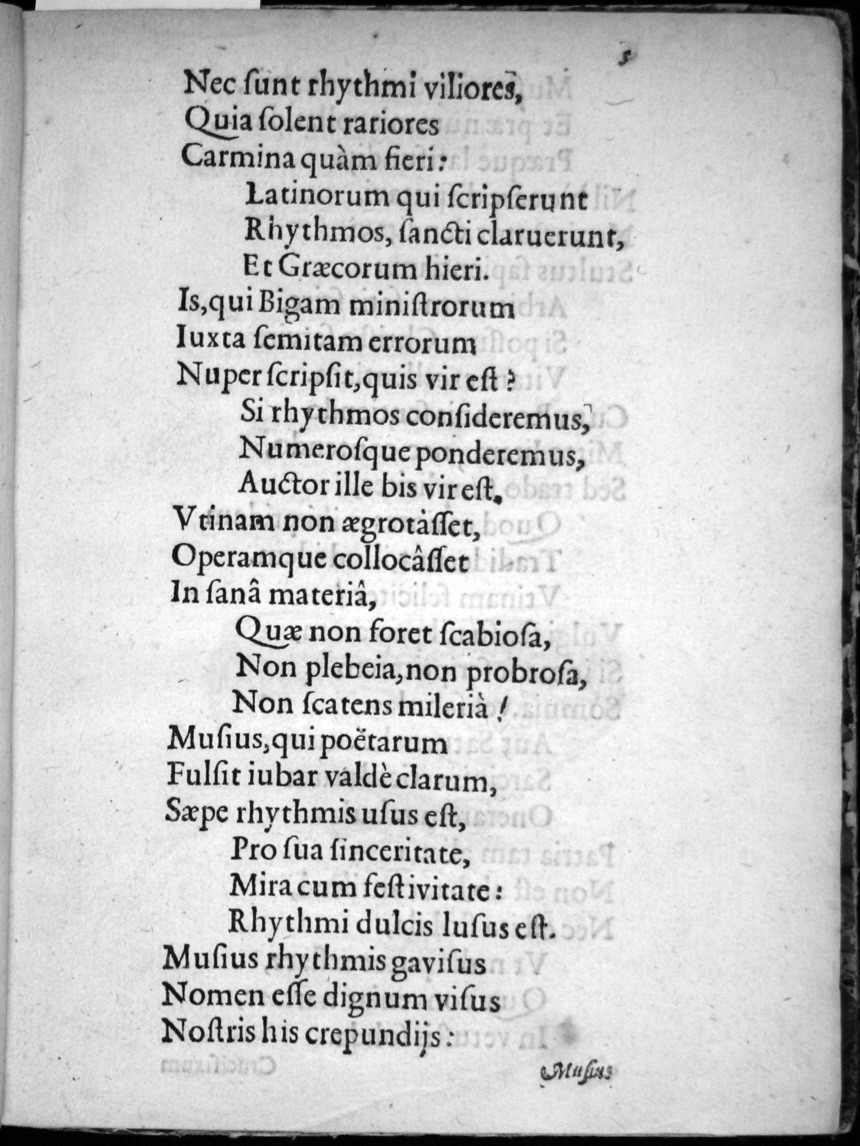 5
Nec ſunt rhythmi viliores,
Quia ſolent rariores
Carmina quàm fieri:
Latinorum qui ſcripſerunt
Rhythmos, ſancti claruerunt,
Et Græcorum hieri.
Is, qui Bigam miniſtrorum
Iuxta ſemitam errorum
Nuper ſcripſit, quis vir eſt?
Si rhythmos conſideremus,
Numeroſque ponderemus,
Auctor ille bis vir eſt.
Vtinam non ægrotàſſet,
Operamque collocâſſet
In ſanâ materiâ,
Quæ non foret ſcabioſa,
Non plebeia, non probroſa,
Non ſcatens milerià!
Muſius, qui poëtarum
Fulſit iubar valdè clarum,
Sæpe rhythmis uſus eſt,
Pro ſua ſinceritate,
Mira cum feſtivitate:
Rhythmi dulcis luſus eſt.
Muſius rhythmis gaviſus
Nomen eſſe dignum viſus
Noſtris his crepundijs:
Muſius